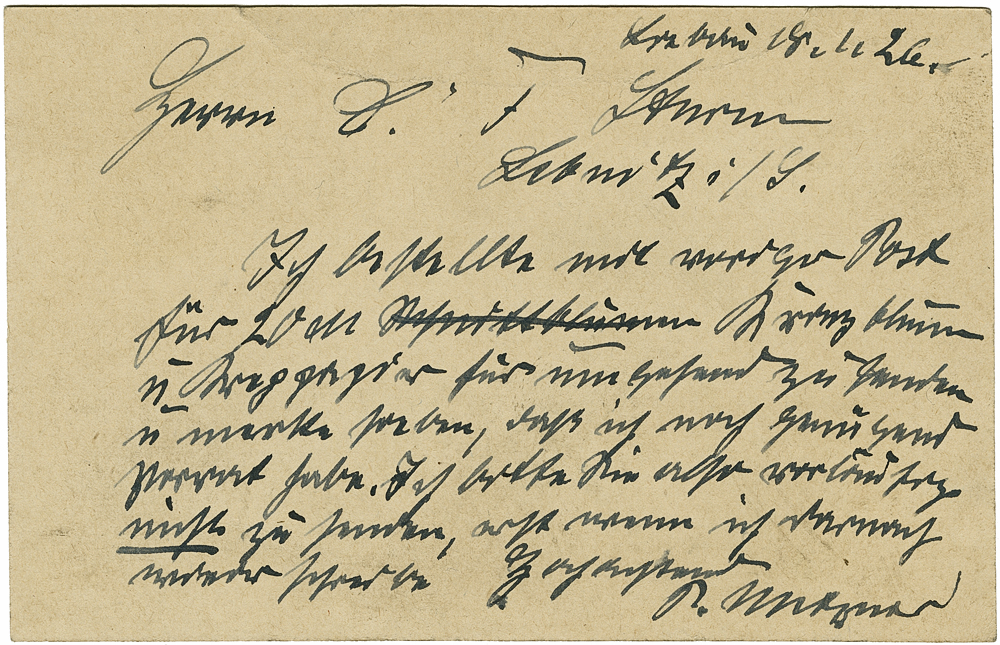 Loebau 18.1.26.
Herrn C. F. Sturm
Sebnitz i/S.
Ich bestellte mit voriger Post
für 20 M Schnittblumen Kranzblumen
u Krepppapier für umgehend zu senden
u merke soeben, daß ich noch genügend
Vorrat habe. Ich bitte Sie also vorläufig
nicht zu senden, erst wenn ich darnach
wieder schreibe Hochachtend